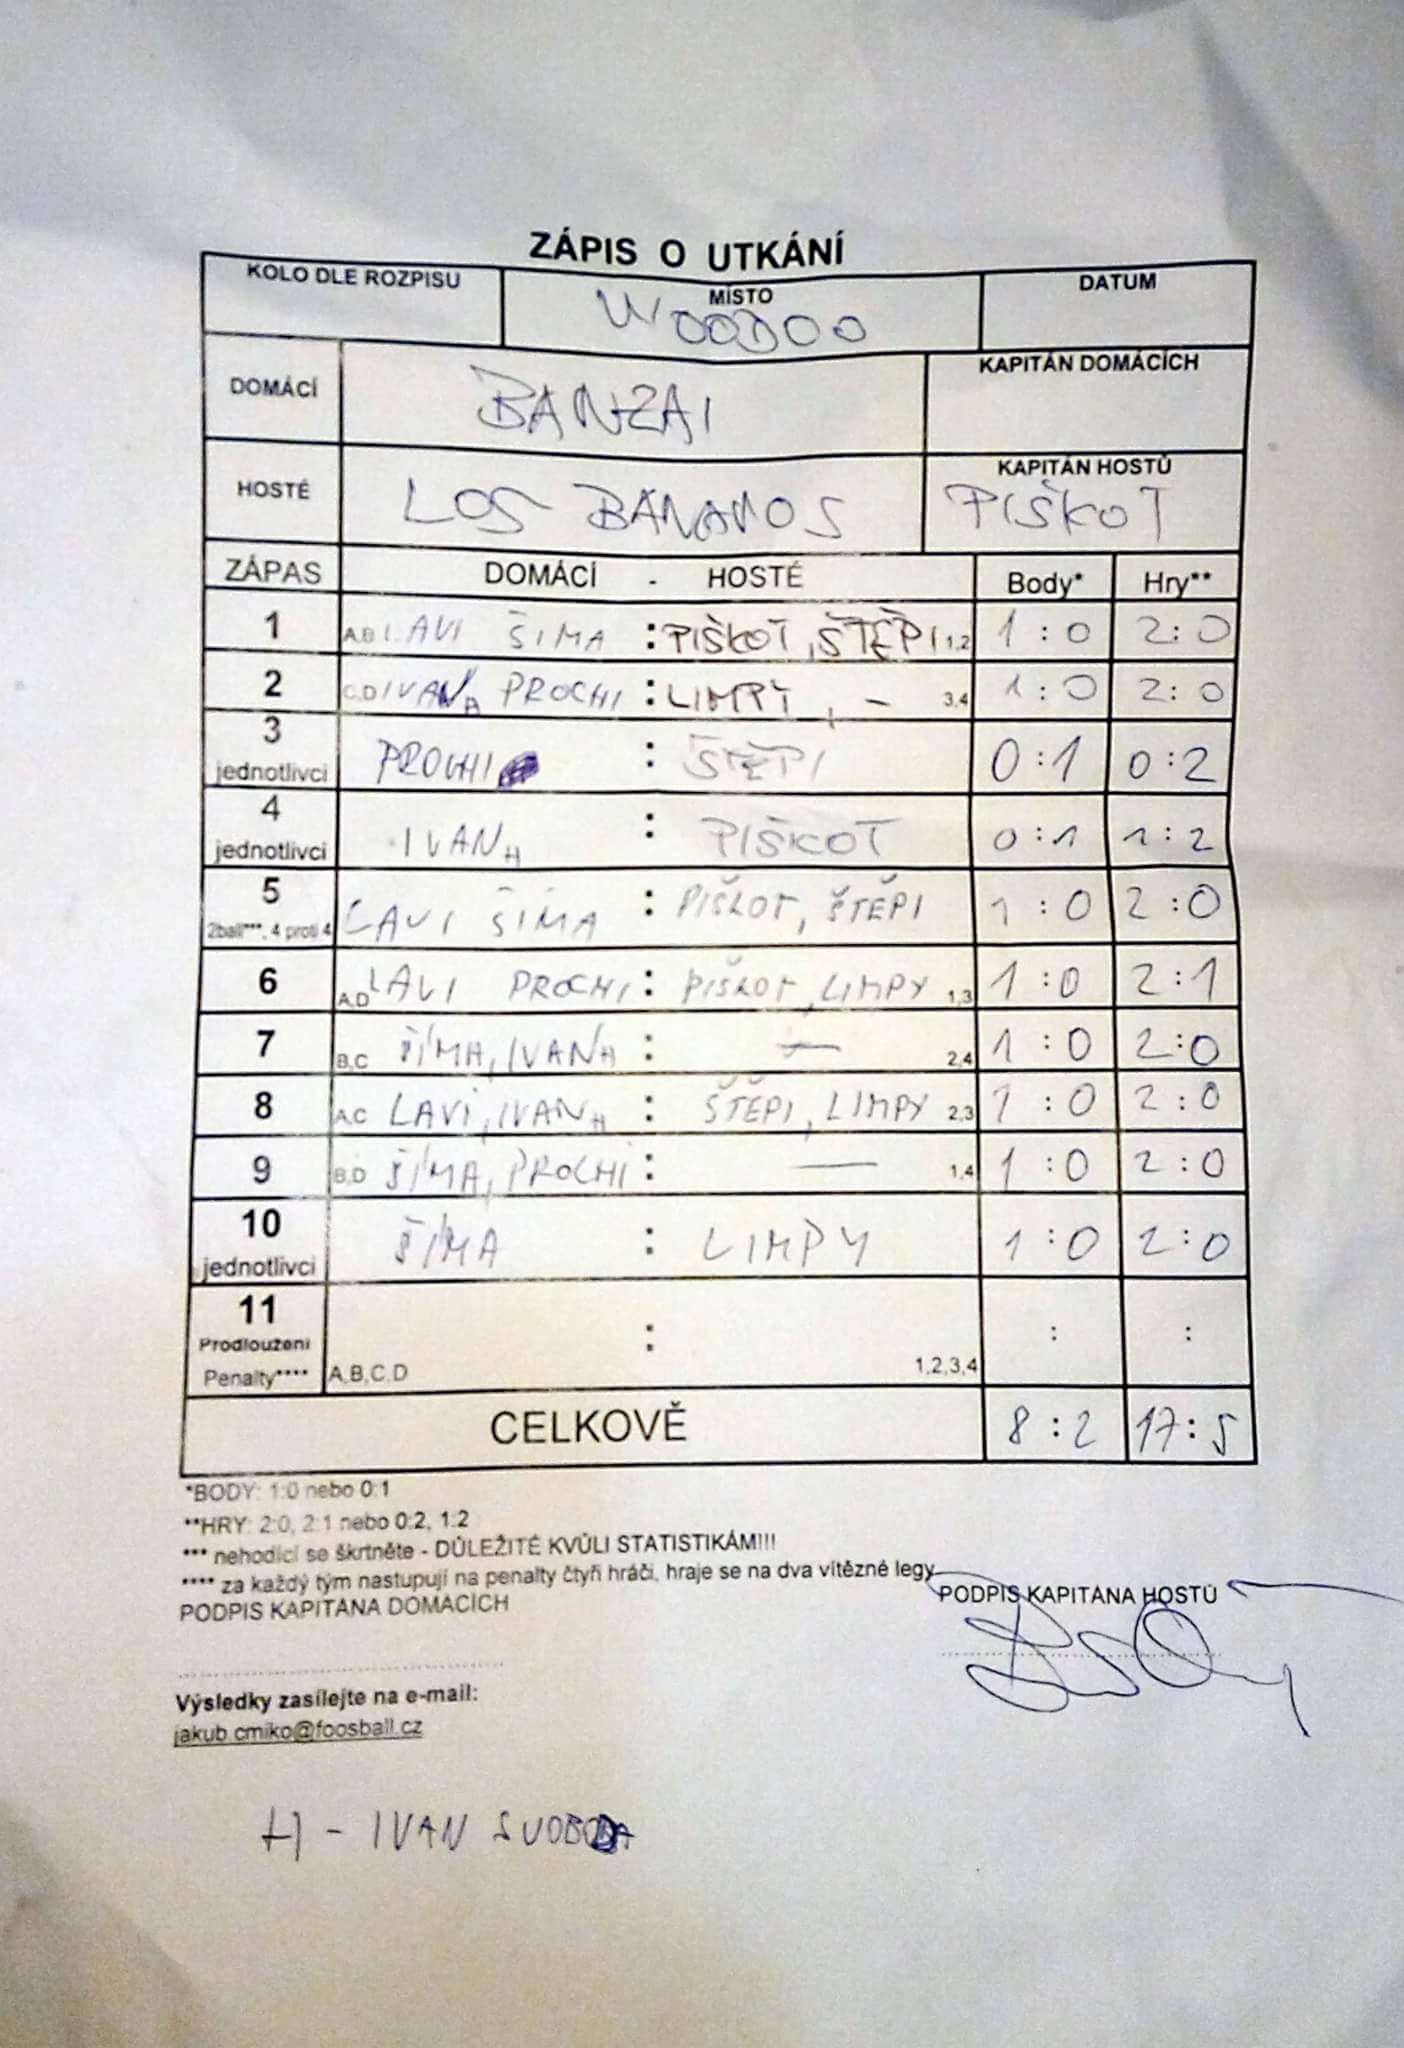 ZÁPIS O UTKÁNÍ
KOLO DLE ROZPISU MÍSTO DATUM
WOODOO
DOMÁCÍ BANZAI KAPITÁN DOMÁCÍCH
HOSTÉ LOS BANANOS KAPITÁN HOSTŮ
PIŠKOT
ZÁPAS DOMÁCÍ - HOSTÉ Body* Hry**
1 A,B LAVI ŠIMA : PIŠKOT, ŠTĚPI 1,2 1:0 2:0
2 C,D IVAN H PROCHI : LIMPY, - 3,4 1:0 2:0
3 jednotlivci PROCHI : ŠTĚPI 0:1 0:2
4 jednotlivci IVAN H : PIŠKOT 0:1 1:2
5 2ball***, 4 proti 4 LAVI ŠIMA : PIŠKOT, ŠTĚPI 1:0 2:0
6 A,D LAVI PROCHI : PIŠKOT, LIMPY 1,3 1:0 2:1
7 B,C ŠÍMA, IVAN H : — 2,4 1:0 2:0
8 A,C LAVI, IVAN H : ŠTĚPI, LIMPY 2,3 1:0 2:0
9 B,D ŠÍMA, PROCHI : — 1,4 1:0 2:0
10 jednotlivci ŠÍMA : LIMPY 1:0 2:0
11 Prodloužení : : :
Penalty**** A,B,C,D 1,2,3,4
CELKOVĚ 8:2 17:5
*BODY: 1:0 nebo 0:1
**HRY: 2:0, 2:1 nebo 0:2, 1:2
*** nehodící se škrtněte - DŮLEŽITÉ KVŮLI STATISTIKÁM!!!
**** za každý tým nastupují na penalty čtyři hráči, hraje se na dva vítězné legy
PODPIS KAPITÁNA DOMÁCÍCH PODPIS KAPITÁNA HOSTŮ
Výsledky zasílejte na e-mail:
jakub.cmiko@foosball.cz
H - IVAN SVOBODA